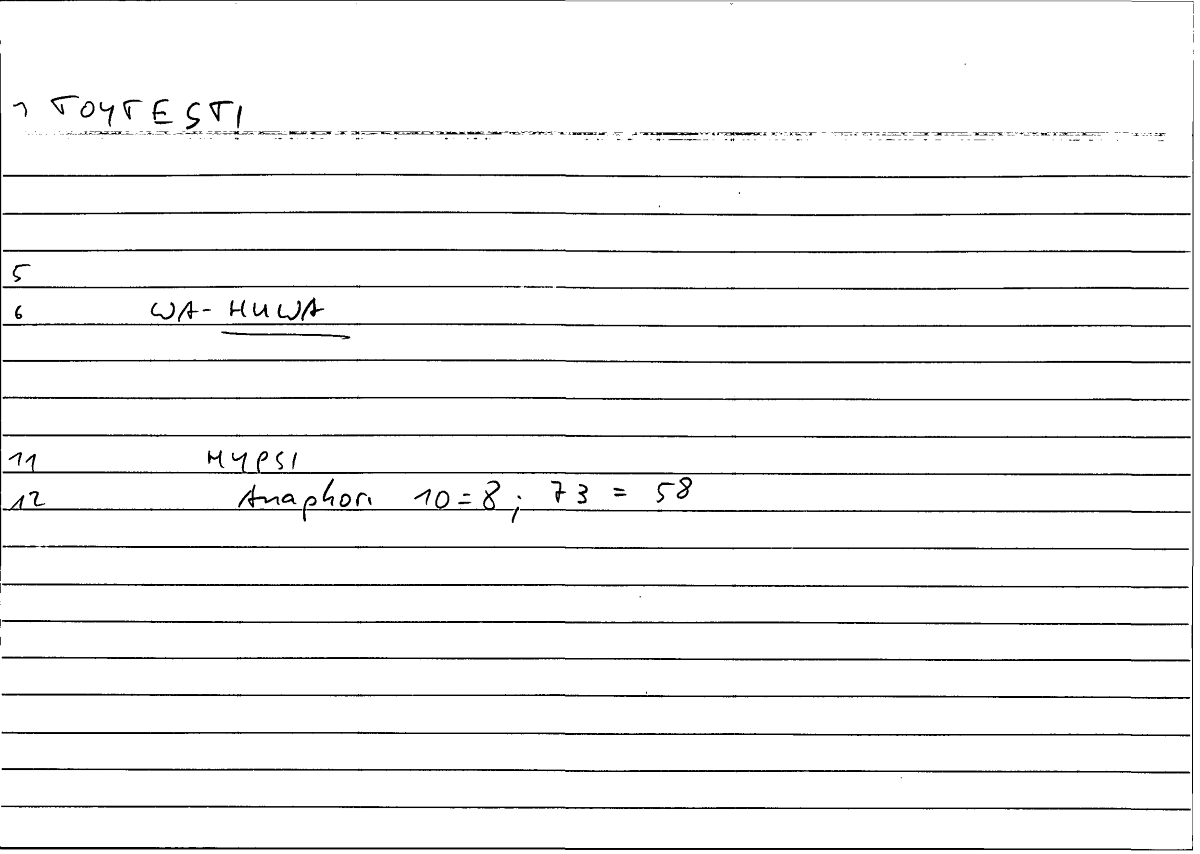 1 TOYTESTI
5
6 WA-HUWA
11 HYPSI
12 Anaphori 10=8; 73 = 58